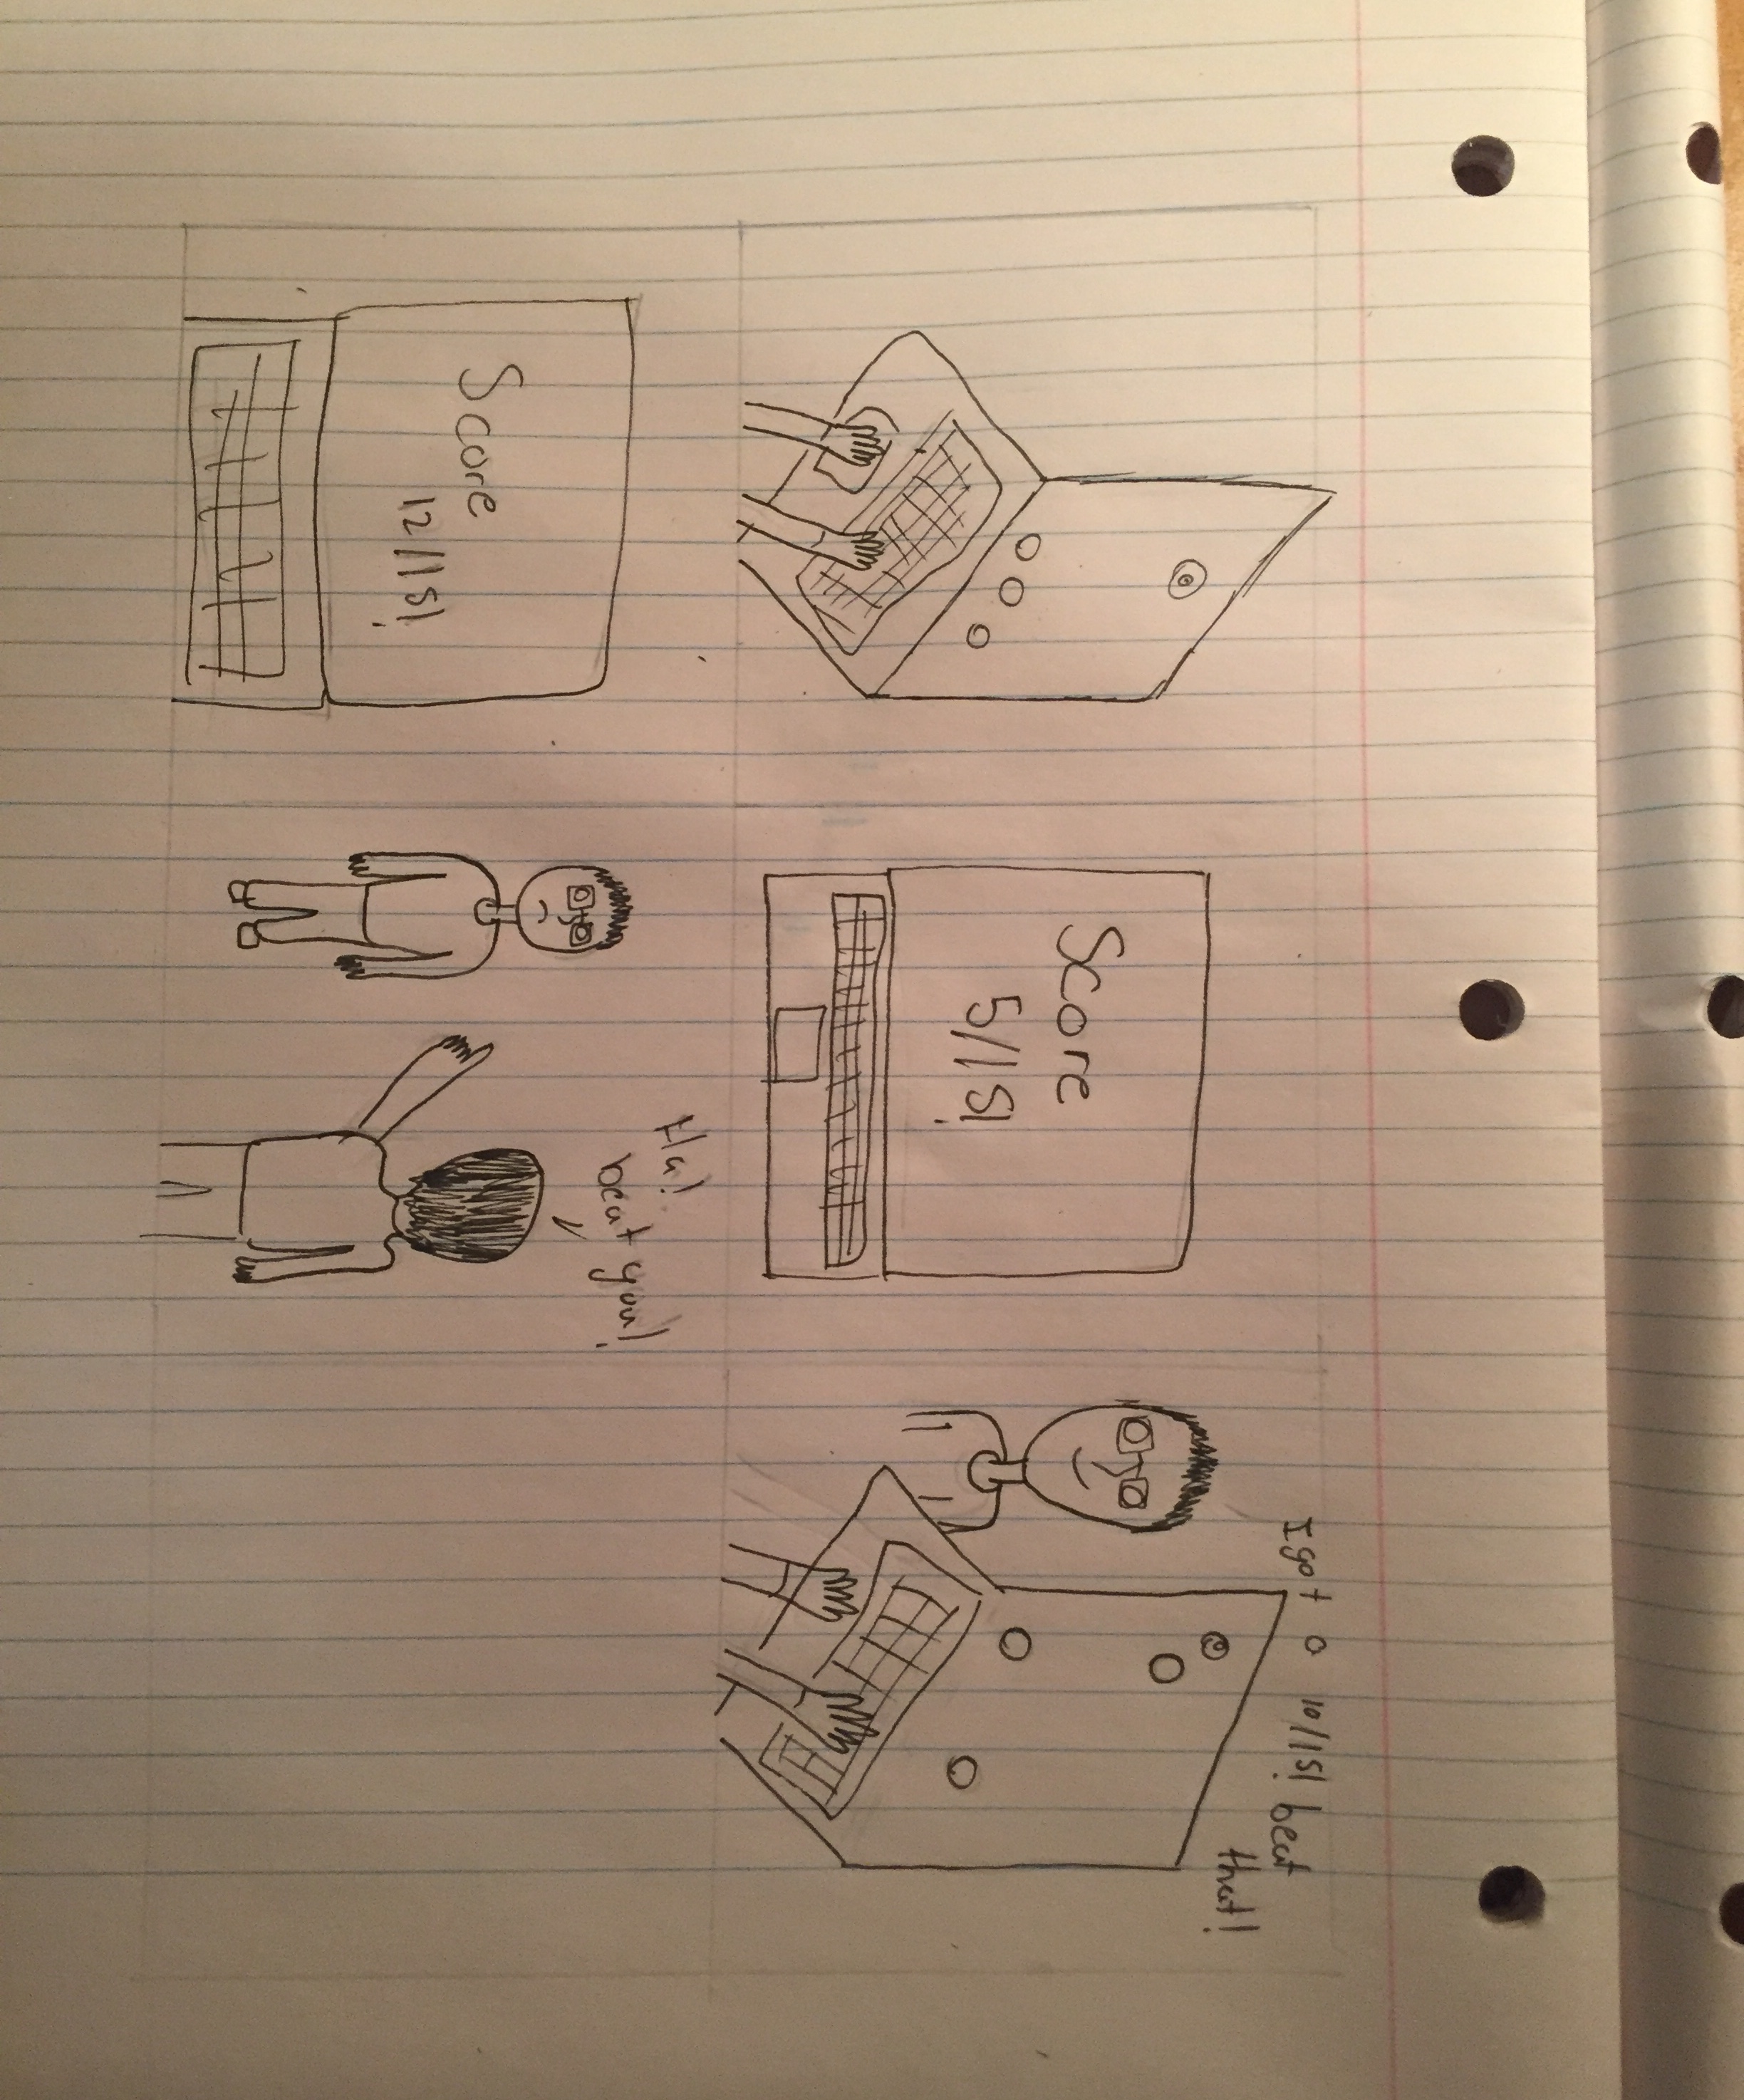 Score
5/15!
I got a 10/15! beat
that!
Score
12/15!
Ha!
beat you!